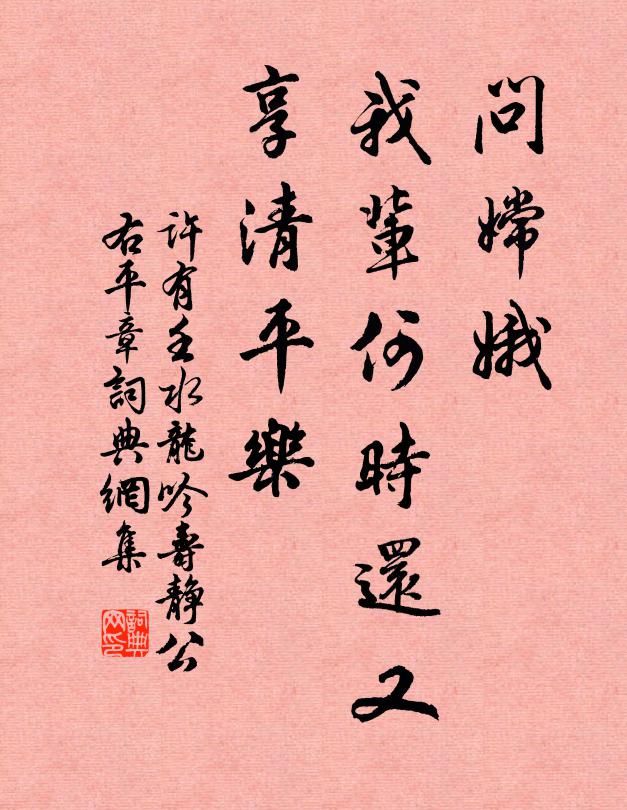 問嫦娥
我輩何時還又
享清平樂
許有壬水龍吟壽静公
右平章詞典網集
詞典网印